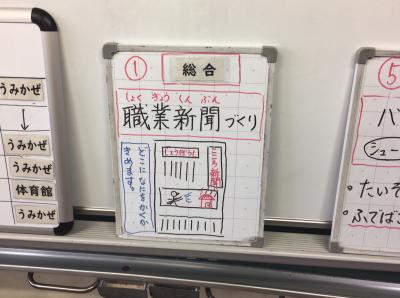 うみかぜ
うみかぜ
うみかぜ
体育館
うみかぜ
① 総合
しょくぎょうしんぶん
職業新聞づくり
どこになにをかくか
きめます。
しょうぼう
新聞
⑤
シュー
・たいそ
・ふでば